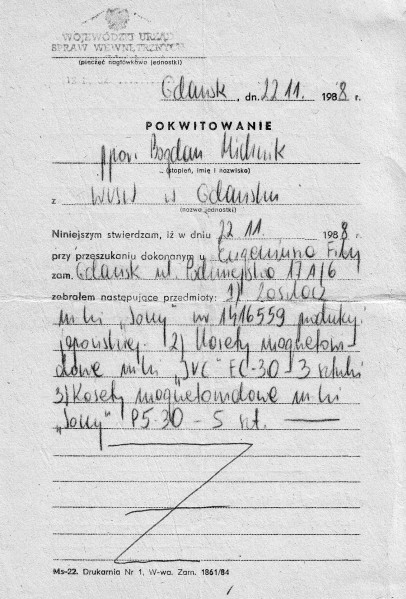 WOJEWÓDZKI URZĄD
SPRAW WEWNĘTRZNYCH
(pieczęć nagłówkowa jednostki)
Gdańsk, dn. 22 11. 1988 r.
POKWITOWANIE
ppor. Bogdan
(stopień, imię i nazwisko)
z WUSW w Gdańsku
(nazwa jednostki)
Niniejszym stwierdzam, iż w dniu 22 11 1988 r.
przy przeszukaniu dokonanym u Eugeniusza
zam. Gdańsk ul. 17 1/6
zobrałem następujące przedmioty: 1)
m-ki „Sony" nr 1416559 produkcji
japońskiej. 2) Kasety magnetowi-
dowe m-ki „JVC" EC-30 - 3 sztuki
3) Kasety magnetowidowe m-ki
„Sony" P5-30 - 5 szt.
Ms-22. Drukarnia Nr 1, W-wa. Zam. 1861/84